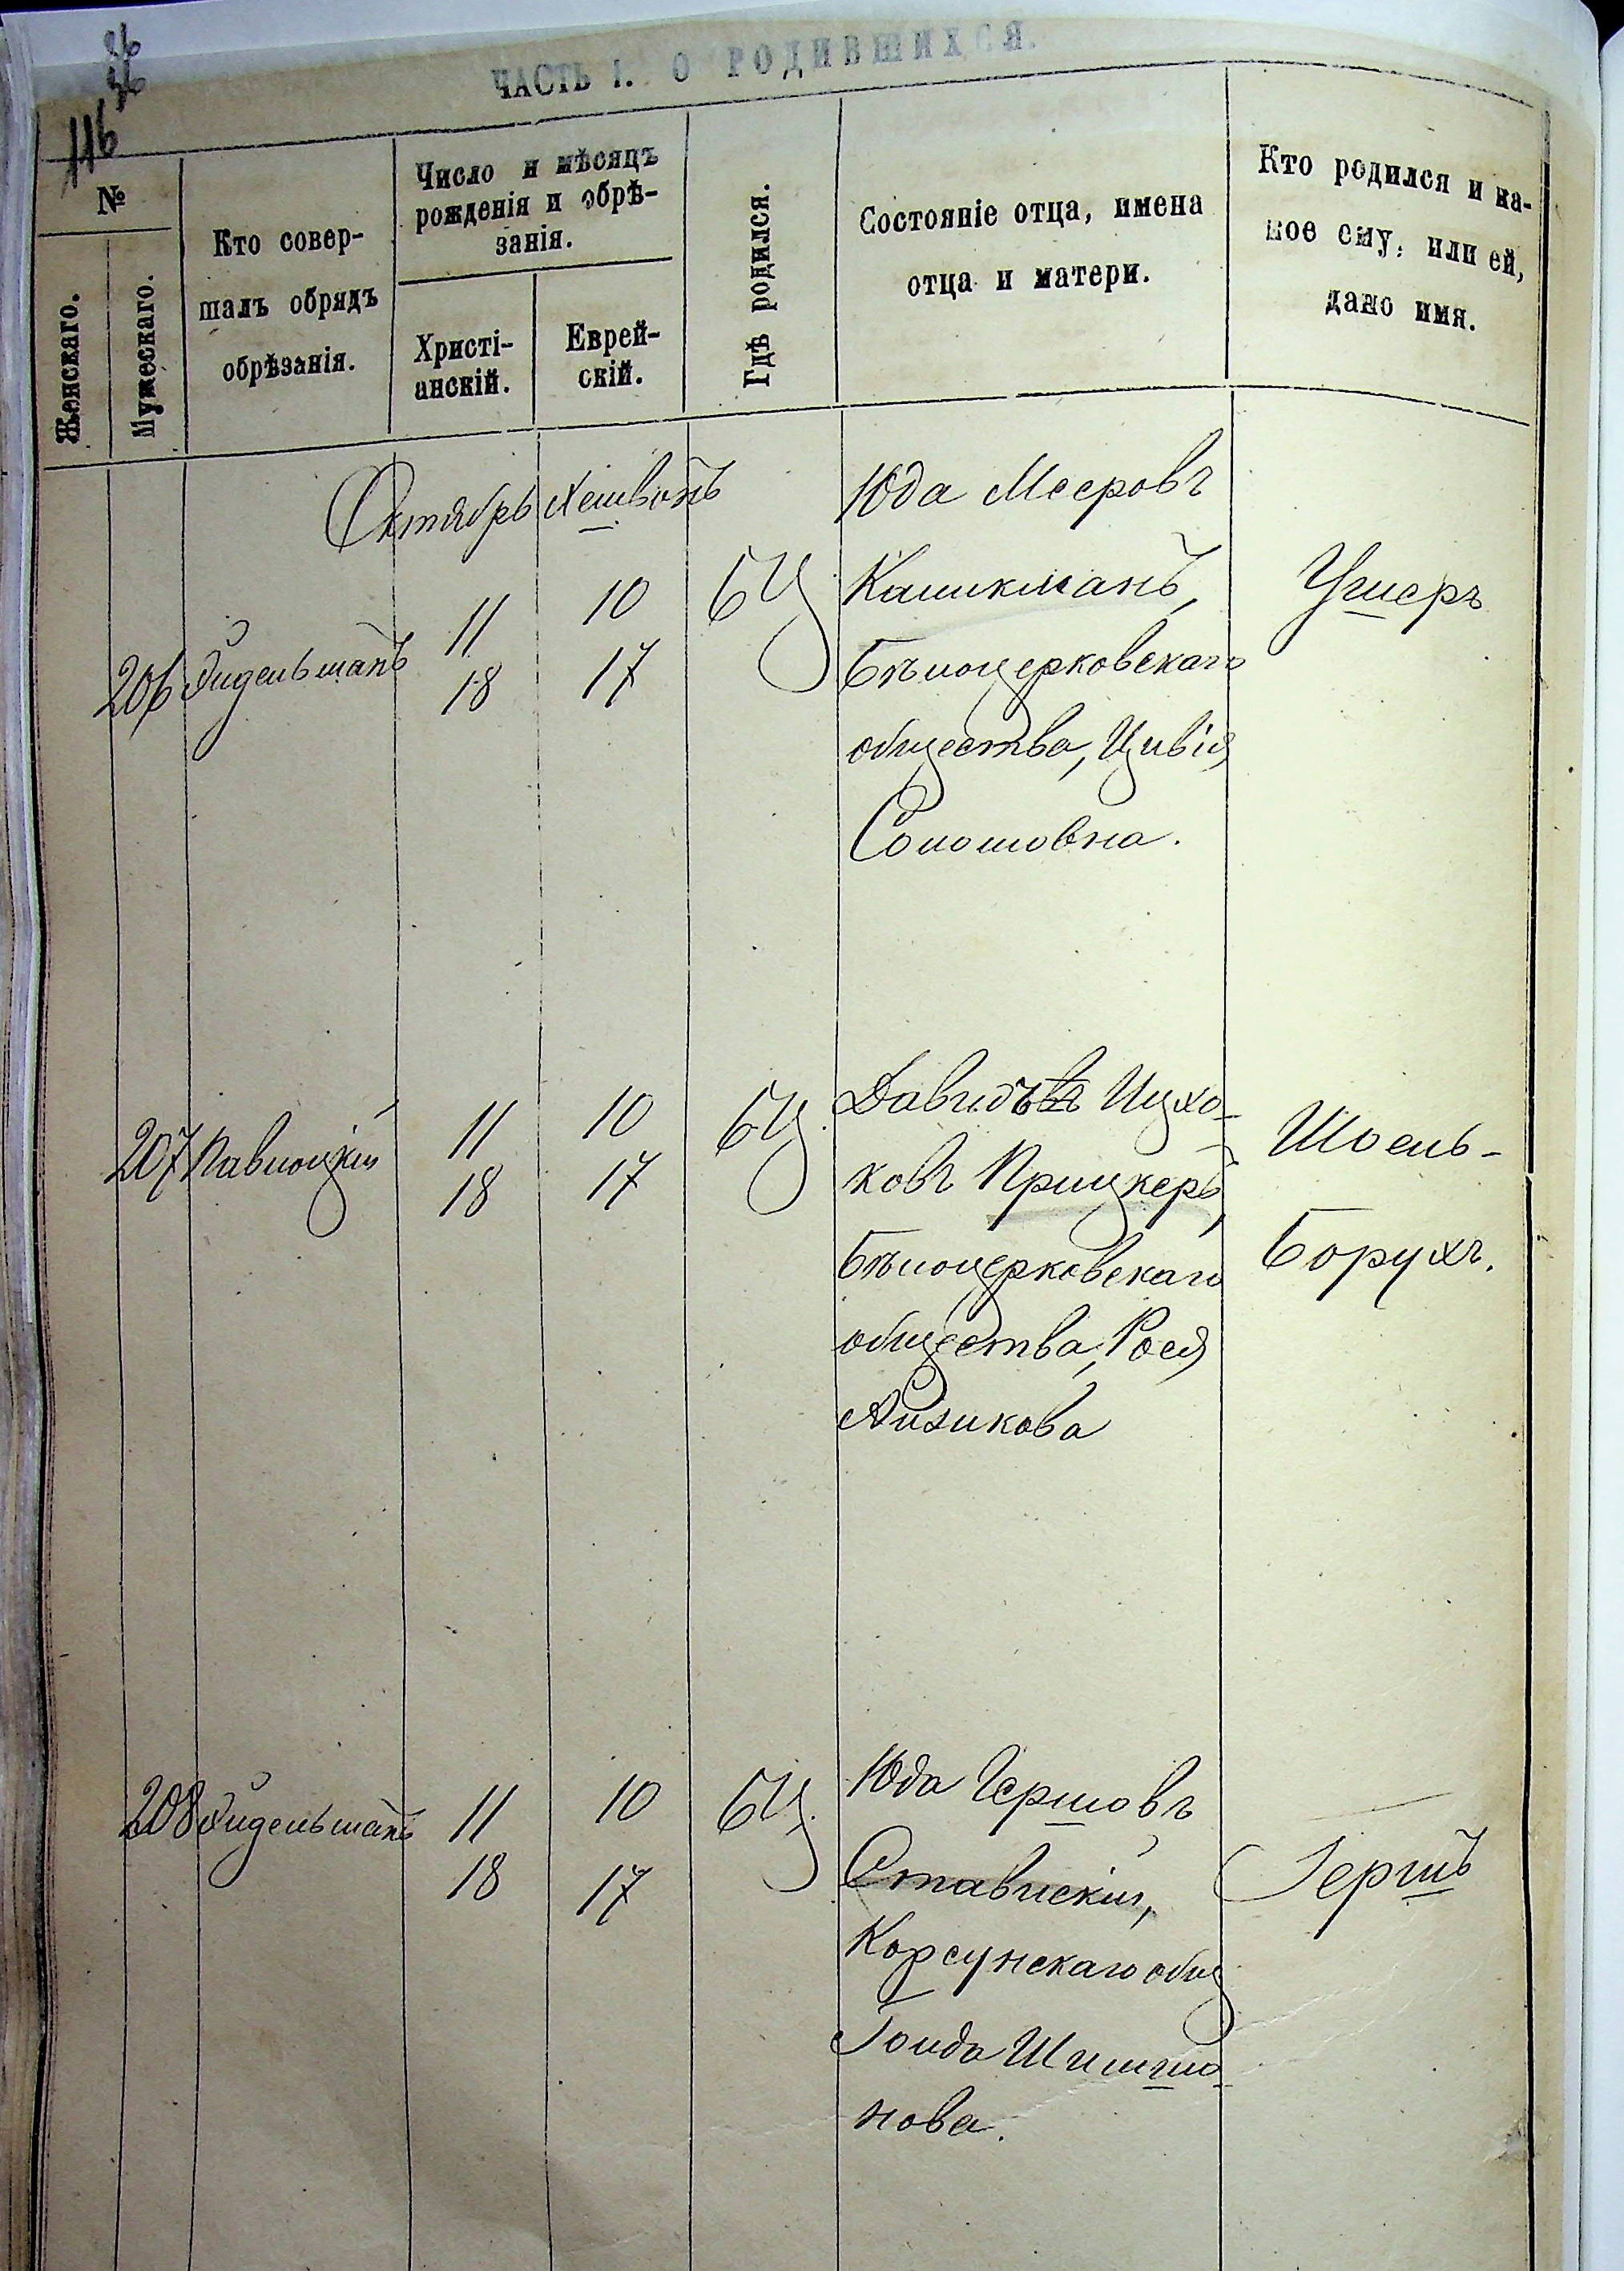 116
ЧАСТЬ I. О РОДИВШИХСЯ.
№
Женскаго.
Мужескаго.
Кто совер-
шалъ обрядъ
обрѣзанія.
Число и мѣсяцъ
рожденія и обрѣ-
занія.
Христі-
анскій.
Еврей-
скій.
Гдѣ родился.
Состояніе отца, имена
отца и матери.
Кто родился и ка-
кое ему, или ей,
дано имя.
Октябрь Хешванъ
206 Эйдельманъ
11 10
18 17
БЦ
Юда Мееровъ
Каликманъ,
Бѣлоцерковскаго
общества, Цивія
Соломовна.
Ушеръ
207 Павлоцкій
11 10
18 17
БЦ.
Давидъ Ицхо-
ковъ Прицкеръ,
Бѣлоцерковскаго
общества, Рося
Айзикова
Шоель-
Борухъ.
208 Эйдельманъ
11 10
18 17
БЦ.
Юда Гершовъ
Ставискій,
Корсунскаго общ
Голда Шимшо-
нова.
Гершъ